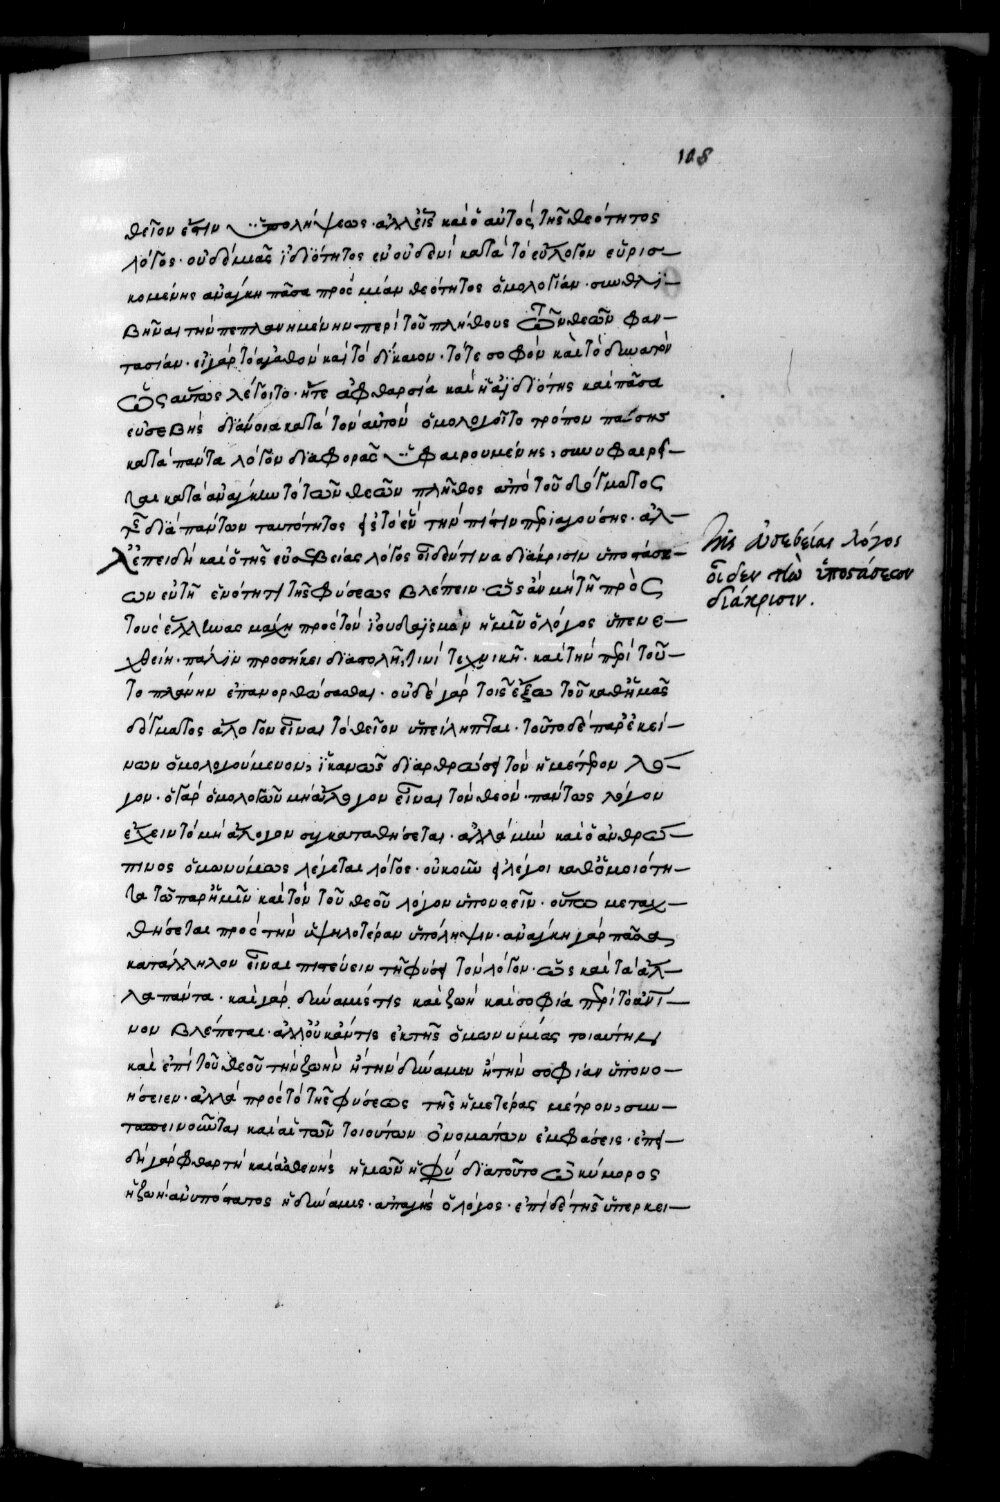 108
θεῖον ἐστιν ὑπολήψεως · ἀλλ' εἷς καὶ ὁ αὐτὸς τῆς θεότητος
λόγος · οὐδεμιᾶς ἰδιότητος ἐν οὐδενὶ κατὰ τὸ εὔλογον εὑρισ–
κομένης ἀνάγκη πᾶσα πρὸς μίαν θεότητος ὁμολογίαν · συνθλι–
βῆναι τὴν πεπλανημένην περὶ τοῦ πλήθους τῶν θεῶν φαν–
τασίαν · εἰ γὰρ τὸ ἀγαθὸν καὶ τὸ δίκαιον · τότε σοφὸν καὶ τὸ δυνατὸν
ὡσαύτως λέγοιτο · ἥτε ἀφθαρσία καὶ ἡ ἀϊδιότης καὶ πᾶσα
εὐσεβὴς διάνοια κατὰ τὸν αὐτὸν ὁμολογοῖτο τρόπον πάσης
κατὰ πάντα λόγον διαφορᾶς ὑφαιρουμένης, συνυφαιρεῖ–
ται κατ' ἀνάγκην τὸ τῶν θεῶν πλῆθος ἀπὸ τοῦ δόγματος
τῆς διὰ πάντων ταυτότητος εἰς τὸ ἓν τὴν πίστιν περιαγούσης · ἀλ–
λ' ἐπειδὴ καὶ ὁ τῆς εὐσεβείας λόγος οἶδέν τινα διάκρισιν ὑποστάσε–
ων ἐν τῇ ἑνότητι τῆς φύσεως βλέπειν · ὡς ἂν μὴ τῇ πρὸς
τοὺς ἕλληνας μάχη πρὸς τὸν ἰουδαϊσμὸν ἡμῖν ὁ λόγος ὑπενε–
χθείη · πάλιν προσήκει διαστολῇ τινὶ τεχνικῇ · καὶ τὴν περὶ τοῦ–
το πλάνην ἐπανορθώσασθαι · οὐδὲ γὰρ τοῖς ἔξω τοῦ καθ' ἡμᾶς
δόγματος ἄλογον εἶναι τὸ θεῖον ὑπείληπται · τοῦτο δὲ παρ' ἐκεί–
νων ὁμολογούμενον, ἱκανῶς διαρθρώσει τὸν ἡμέτερον λό–
γον · ὁ γὰρ ὁμολογῶν μὴ ἄλογον εἶναι τὸν θεόν · πάντως λόγον
ἔχειν τὸ μὴ ἄλογον συγκαταθήσεται · ἀλλὰ μὴν καὶ ὁ ἀνθρώ–
πινος ὁμωνύμως λέγεται λόγος · οὐκοῦν εἰ λέγοι καθ' ὁμοιότη–
τα τῶν παρ' ἡμῖν καὶ τὸν τοῦ θεοῦ λόγον ὑπονοεῖν · οὕτω μεταχ–
θήσεται πρὸς τὴν ὑψηλοτέραν ὑπόληψιν · ἀνάγκη γὰρ πᾶσα
κατάλληλον εἶναι πιστεύειν τῇ φύσει τὸν λόγον · ὡς καὶ τὰ ἄλ–
λα πάντα · καὶ γὰρ δύναμίς τις καὶ ζωὴ καὶ σοφία περὶ τὸ ἀν̅ι–
νον βλέπεται · ἀλλ' οὐκ ἄν τις ἐκ τῆς ὁμωνυμίας τοιαύτην
καὶ ἐπὶ τοῦ θεοῦ τὴν ζωὴν ἢ τὴν δύναμιν ἢ τὴν σοφίαν ὑπονο–
ήσειεν · ἀλλὰ πρὸς τὸ τῆς φύσεως τῆς ἡμετέρας μέτρον, συν–
ταπεινοῦνται καὶ αἱ τῶν τοιούτων ὀνομάτων ἐμφάσεις · ἐπει–
δὴ γὰρ φθαρτὴ καὶ ἀσθενὴς ἡμῶν ἡ φύ διὰ τοῦτο ὠκύμορος
ἡ ζωή · ἀνυπόστατος ἡ δύναμις · ἀπαγὴς ὁ λόγος · ἐπὶ δὲ τῆς ὑπερκει–
τῆς εὐσεβείας λόγος
οἶδεν τῶν ὑποστάσεων
διάκρισιν.